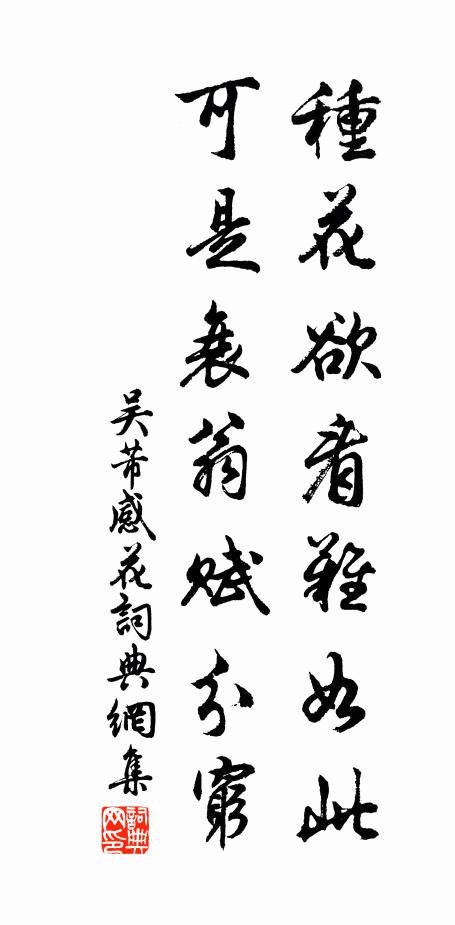 種花欲看難如此
可是衰翁賦分窮
吴芾感花詞典網集
詞典网印